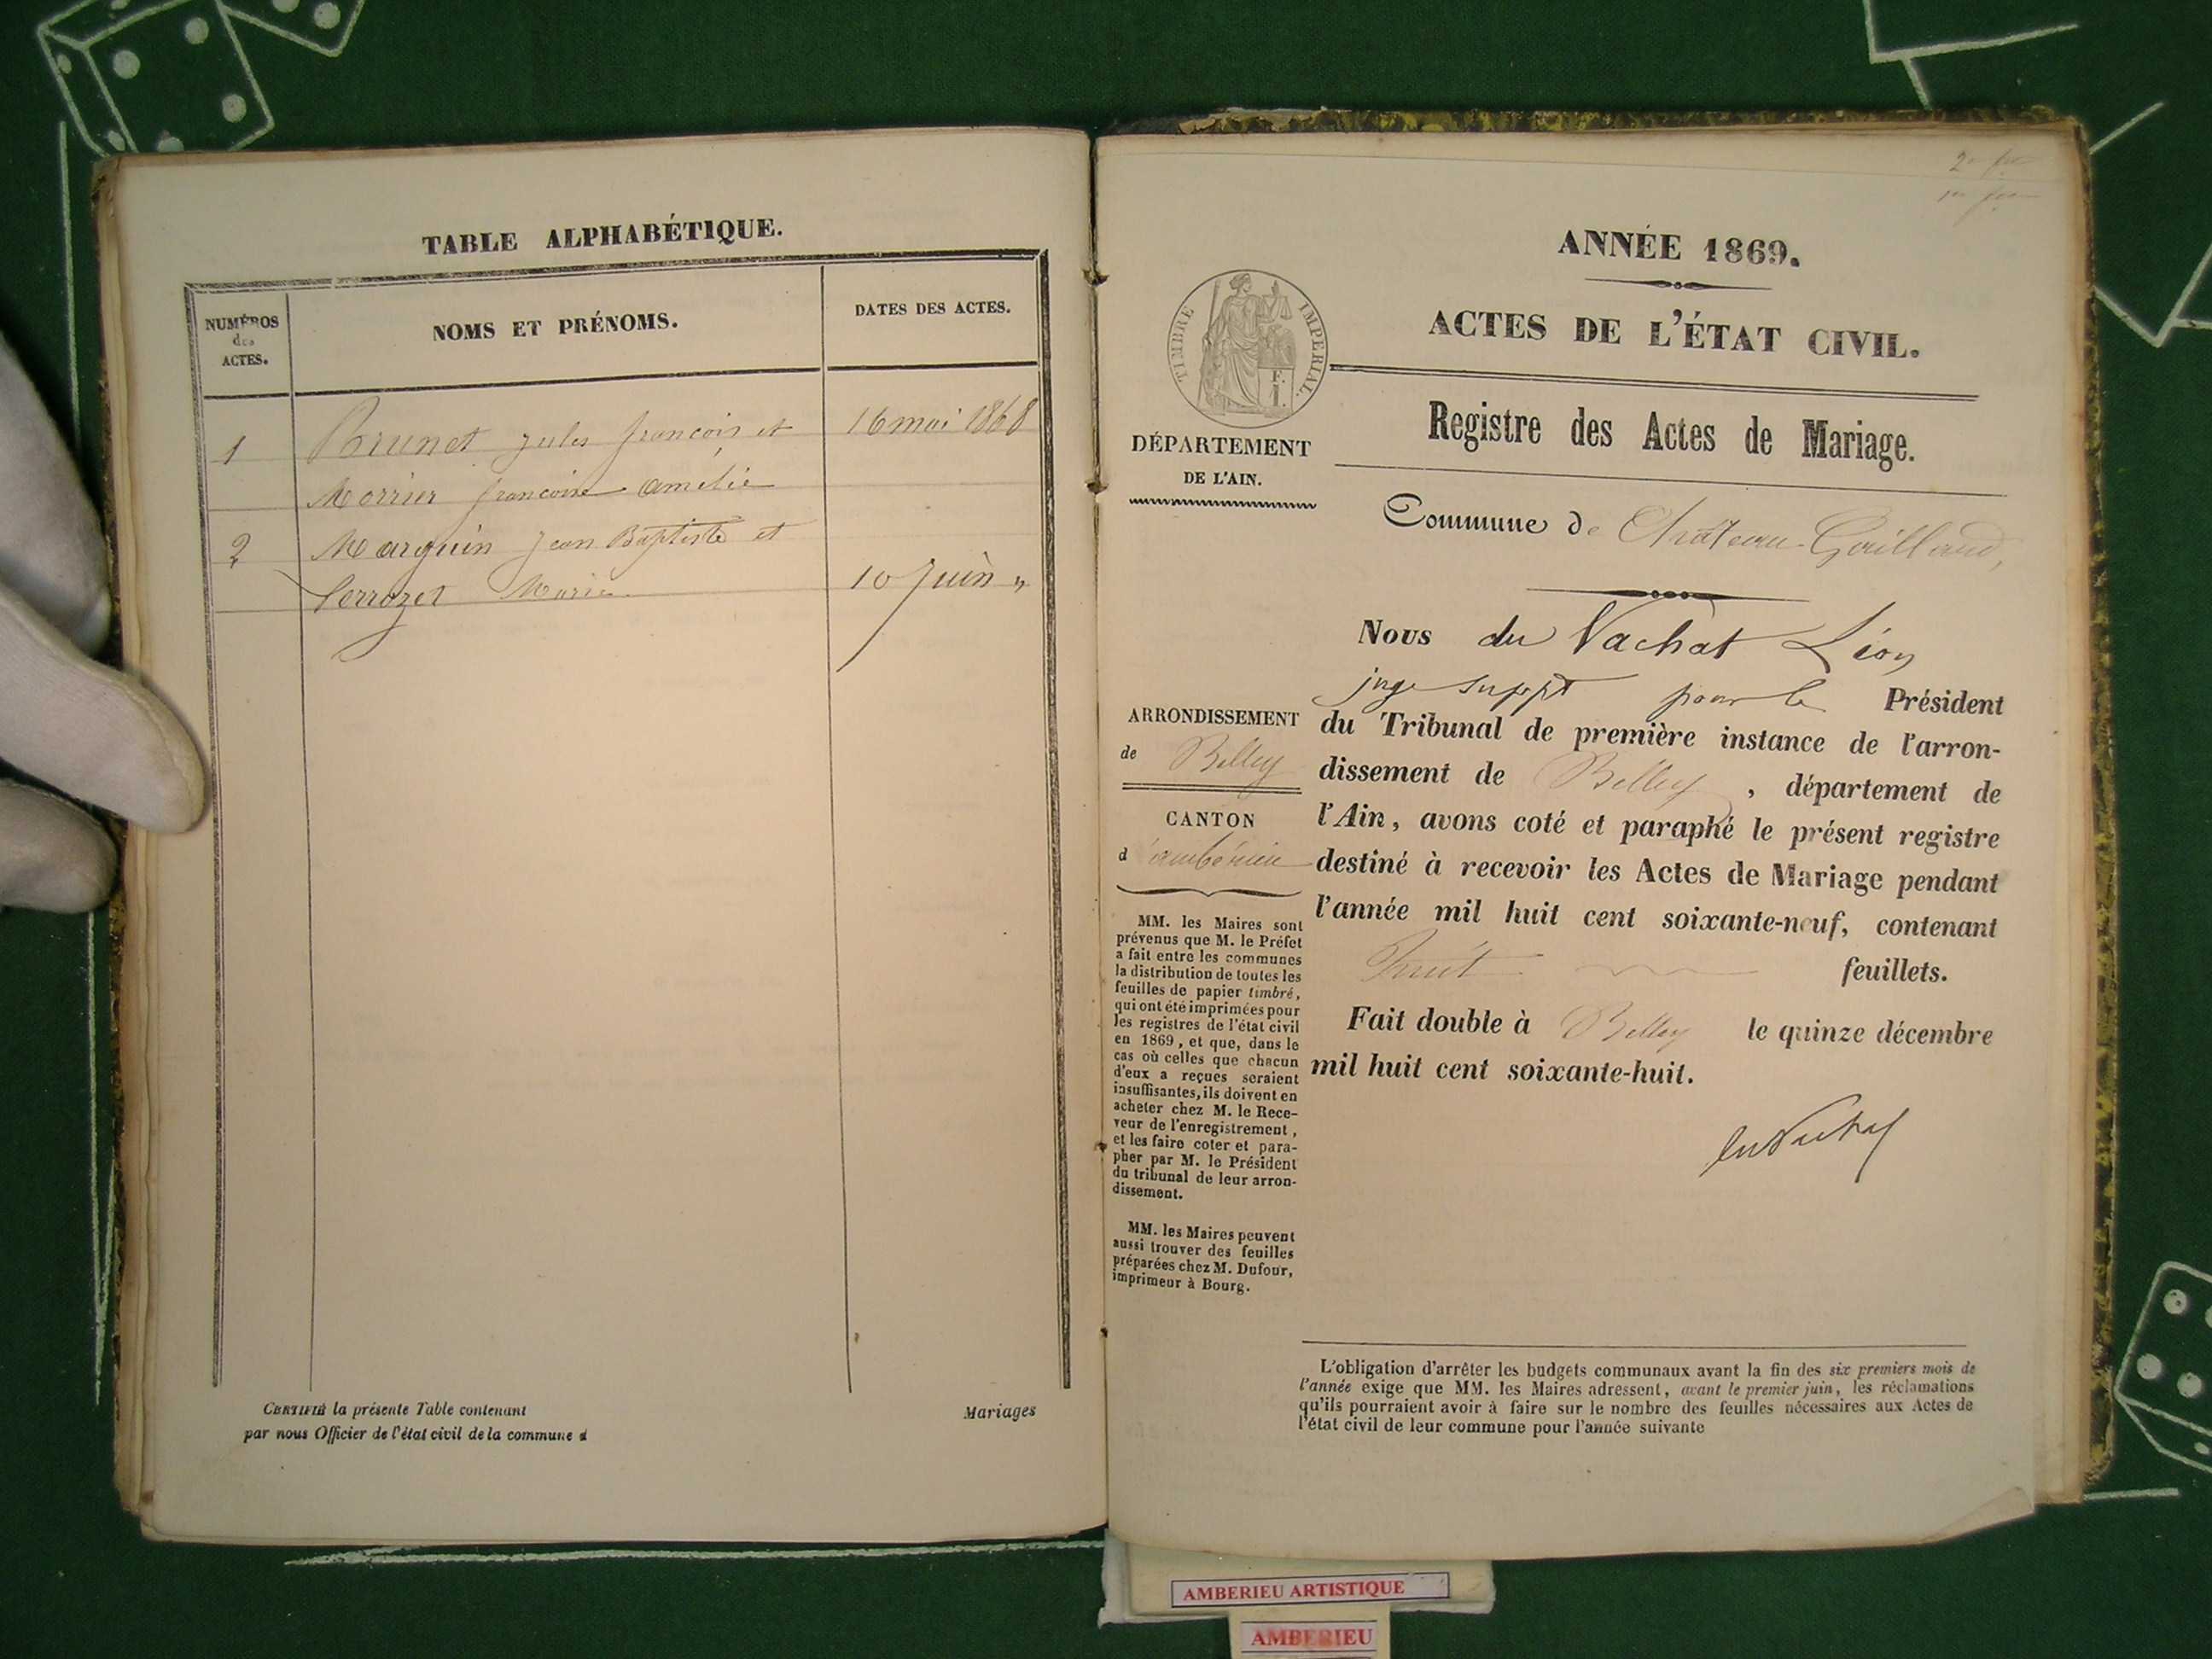 TABLE ALPHABÉTIQUE.
NUMÉROS
des
ACTES.
NOMS ET PRÉNOMS.
DATES DES ACTES.
1 Brunet jules francois et 16 mai 1868
Morrier francoise amélie
2 Marguin jean Baptiste et
Perrozet Marie 10 Juin "
CERTIFIÉ la présente Table contenant Mariages
par nous Officier de l'état civil de la commune d
ANNÉE 1869.
ACTES DE L'ÉTAT CIVIL.
TIMBRE IMPERIAL.
DÉPARTEMENT
DE L'AIN.
Registre des Actes de Mariage.
Commune de Château-Gaillard,
ARRONDISSEMENT
de Belley
CANTON
d'ambérieu
MM. les Maires sont
prévenus que M. le Préfet
a fait entre les communes
la distribution de toutes les
feuilles de papier timbré,
qui ont été imprimées pour
les registres de l'état civil
en 1869, et que, dans le
cas où celles que chacun
d'eux a reçues seraient
insuffisantes, ils doivent en
acheter chez M. le Rece-
veur de l'enregistrement,
et les faire coter et para-
pher par M. le Président
du tribunal de leur arron-
dissement.
MM. les Maires peuvent
aussi trouver des feuilles
préparées chez M. Dufour,
imprimeur à Bourg.
Nous du Vachat Léon
juge suppt pour le Président
du Tribunal de première instance de l'arron-
dissement de Belley, département de
l'Ain, avons coté et paraphé le présent registre
destiné à recevoir les Actes de Mariage pendant
l'année mil huit cent soixante-neuf, contenant
huit feuillets.
Fait double à Belley le quinze décembre
mil huit cent soixante-huit.
du Vachat
L'obligation d'arrêter les budgets communaux avant la fin des six premiers mois de
l'année exige que MM. les Maires adressent, avant le premier juin, les réclamations
qu'ils pourraient avoir à faire sur le nombre des feuilles nécessaires aux Actes de
l'état civil de leur commune pour l'année suivante
AMBERIEU ARTISTIQUE
AMBERIEU